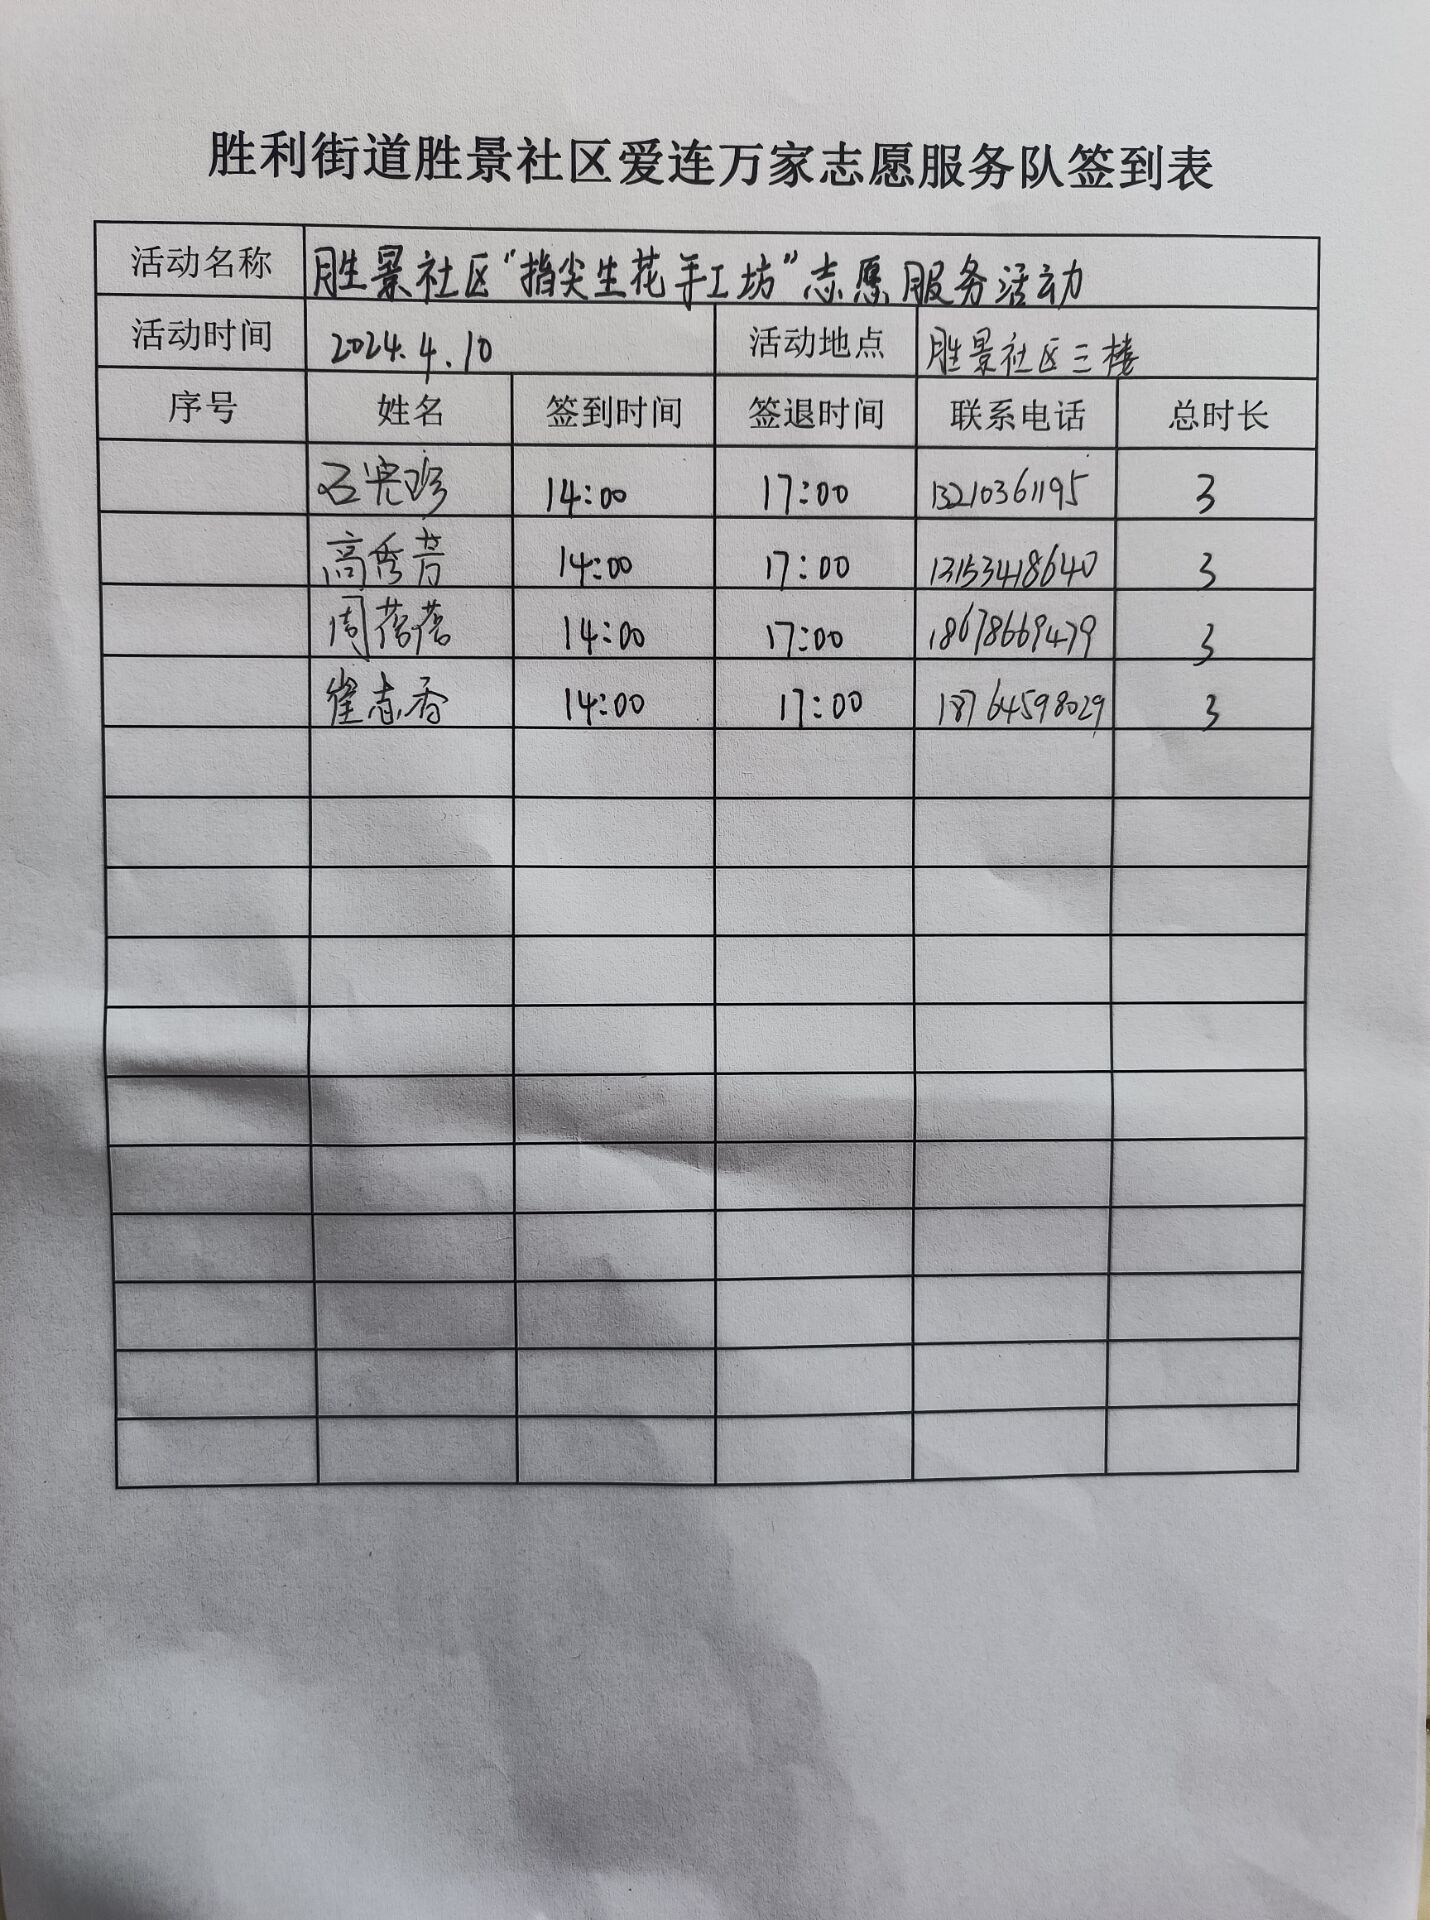 胜利街道胜景社区爱连万家志愿服务队签到表
活动名称 胜景社区“指尖生花手工坊”志愿服务活动
活动时间 2024.4.10 活动地点 胜景社区三楼
序号 姓名 签到时间 签退时间 联系电话 总时长
14:00 17:00 13210361195 3
高秀芳 14:00 17:00 13153418640 3
周蓓蓓 14:00 17:00 18678669479 3
崔志香 14:00 17:00 18764598029 3